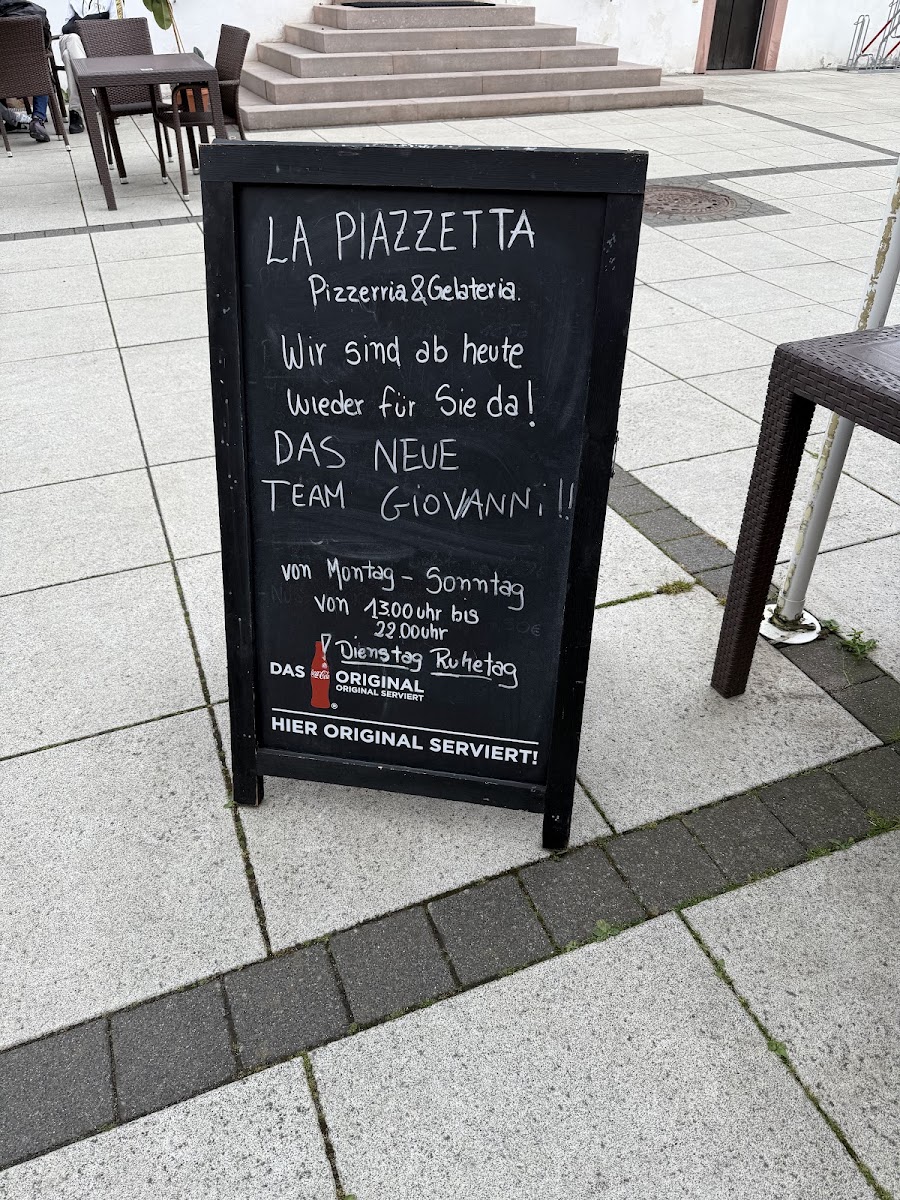 LA PIAZZETTA
Pizzerria & Gelateria.
Wir sind ab heute
wieder für Sie da!
DAS NEUE
TEAM GiOVANNi!!
von Montag - Sonntag
von 13.00 uhr bis
22.00 uhr
! Dienstag Ruhetag
DAS Coca-Cola ORIGINAL
ORIGINAL SERVIERT
®
HIER ORIGINAL SERVIERT!